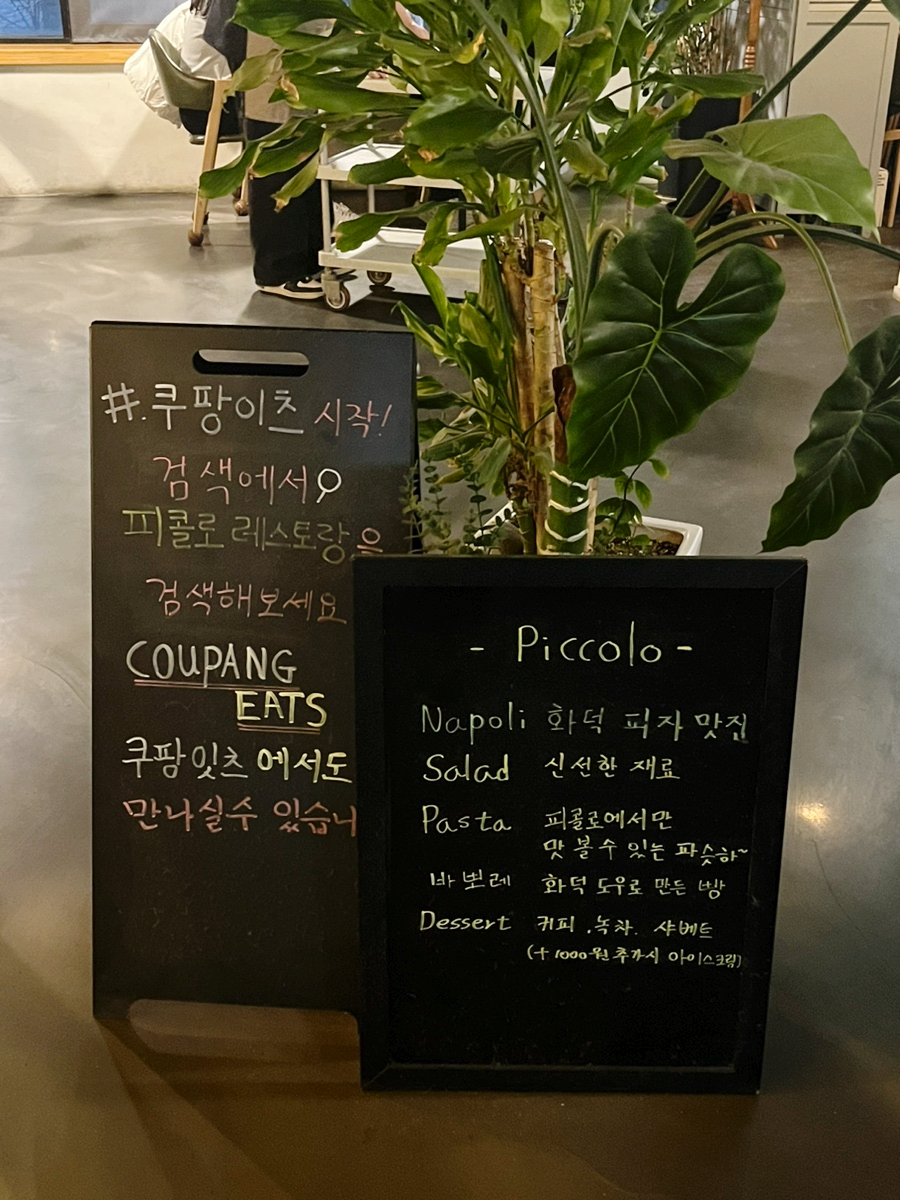 #.쿠팡이츠 시작!
검색에서
피콜로 레스토랑을
검색해보세요
COUPANG
EATS
쿠팡잇츠 에서도
만나실수 있습니
- Piccolo -
Napoli 화덕 피자 맛집
Salad 신선한 재료
Pasta 피콜로에서만
맛 볼 수 있는 파슷하~
바뽀레 화덕 도우로 만든 빵
Dessert 커피 .녹차. 샤베트
(+ 1000원 추가시 아이스크림)